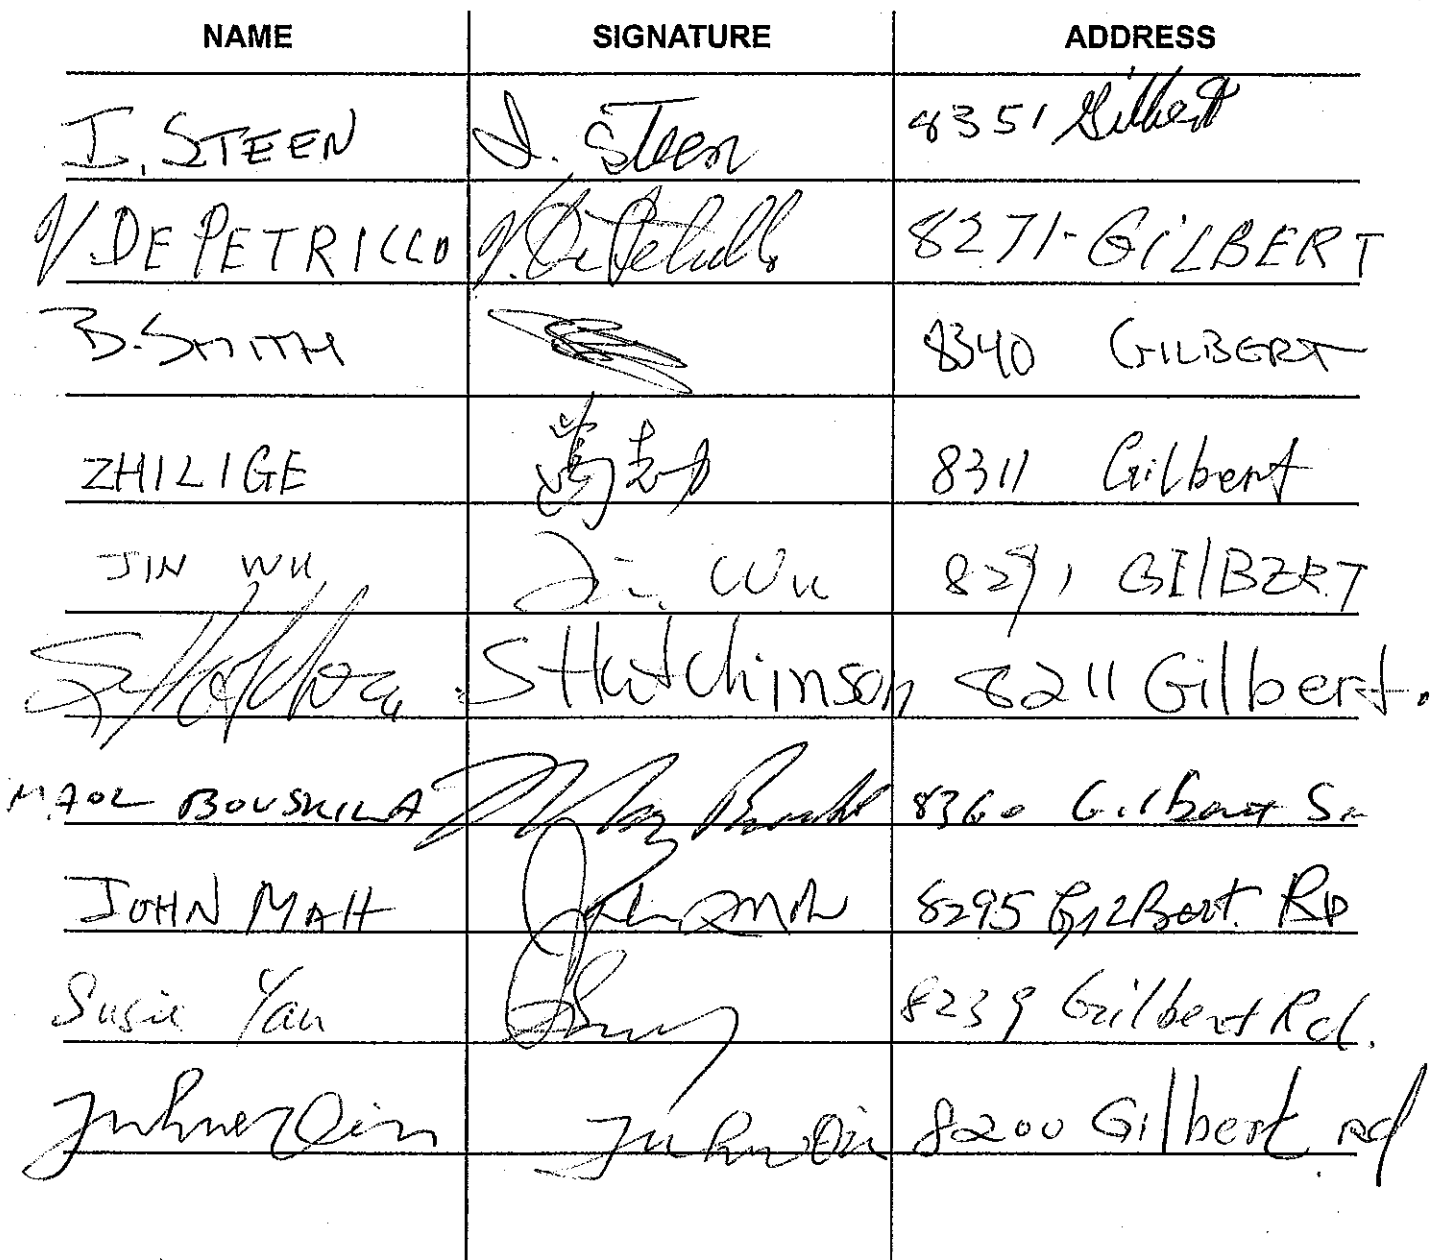 NAME SIGNATURE ADDRESS
I. STEEN I. Steen 8351 Gilbert
V. DE PETRILLO V. De Petrillo 8271- GILBERT
B. SMITH 8340 GILBERT
ZHILI GE 葛志力 8311 Gilbert
JIN WU Jin Wu 8291 GILBERT
S Hutchinson 8211 Gilbert.
BOUSKILA 8360 Gilbert
JOHN MAH John Mah 8295 Gilbert. RD
Susie Yau 8239 Gilbert Rd.
8200 Gilbert rd